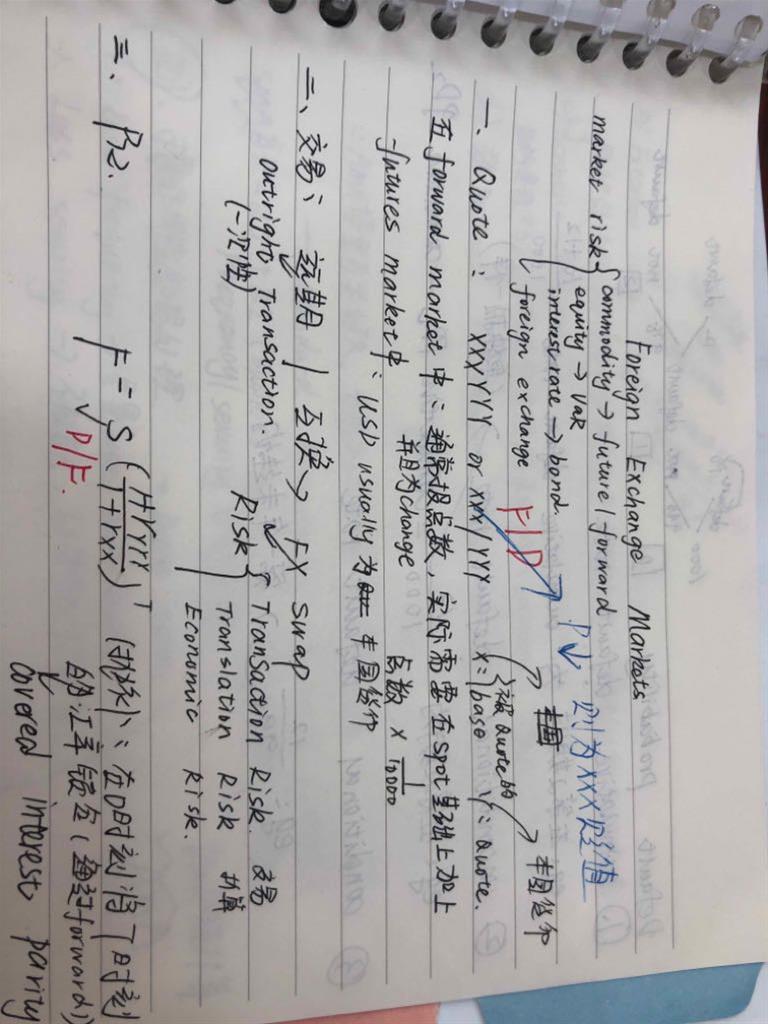 Foreign Exchange Markets
market risk { commodity → future / forward
equity → VaR
interest rate → bond.
foreign exchange
F/D
P↓: 则为XXX贬值
一、Quote: XXXYYY or XXX/YYY X = base Y = Quote.
→ 本国
{ 被quote的
→ 本国货币
在forward market中: 通常报点数, 实际需要在spot基础上加上
并且为change 点数 × 1/10000
futures market中: USD usually 为 本国货币
二、交易: 远期 / 互换 → FX swap
outright Transaction.
(一次性)
Risk { Transaction Risk. 交易
Translation Risk 折算
Economic Risk.
三、
F = S (1+rYYY / 1+rXXX)^T
D/F.
在0时刻将T时刻
的汇率锁定(通过forward)
covered interest parity